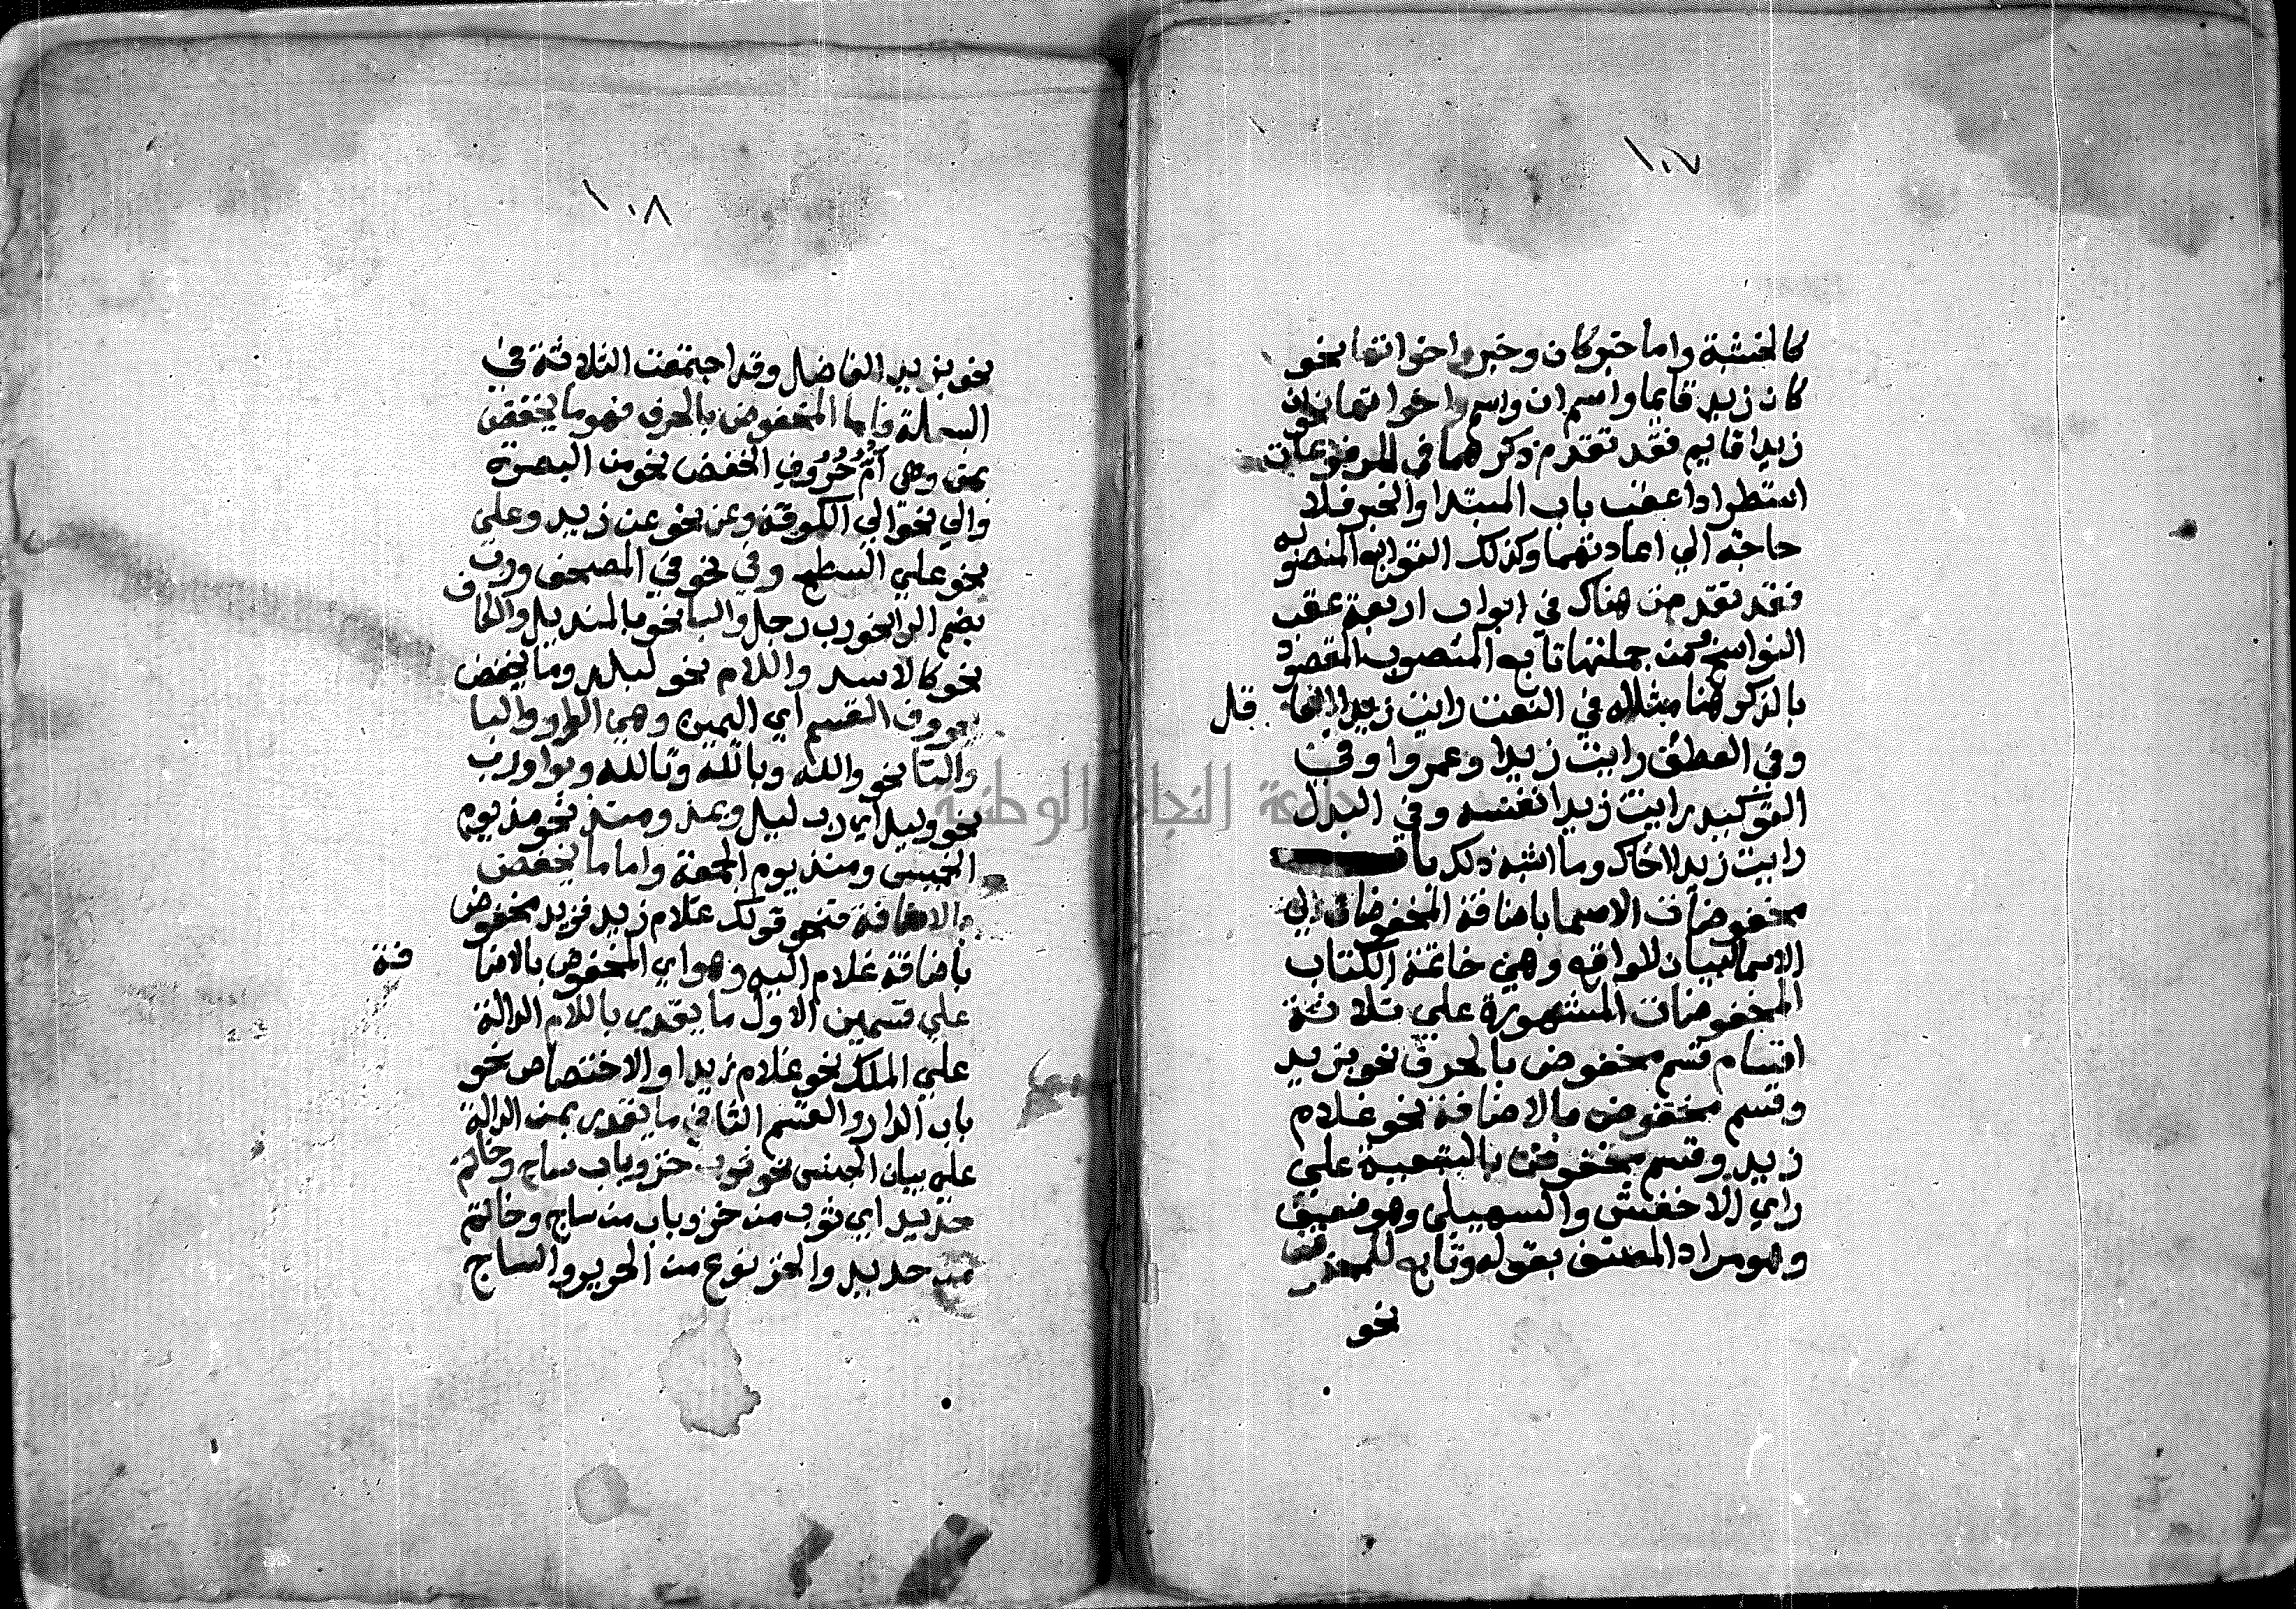 ١٠٧
كالخشبة واما خبر كان وخبر واخواتها نحو
كان زيد قايما واسم ان واسم واخواتها نحو ان
زيدا قايم فقد تقدم ذكرهما في المرفوعات
استطرادا عقب باب المبتدا والخبر فلا
حاجة الي اعادتهما وكذلك التوابع المنصوبه
فقد تقدمن هناك في ابواب اربعة عقب
النواسخ فمن جملتها تابع المنصوب المقصود
بالذكر هنا مثاله في النعت رايت زيدا الفاضل
وفي العطف رايت زيدا وعمروا وفي
التوكيد رايت زيدا نفسه وفي البدل
رايت زيدا اخاك وما اشبه ذلك باب
مخفوضات الاسما باضافة المخفوضات الي
الاسما لبيان للواقع وهي خاتمة الكتاب
المخفوضات المشهورة علي ثلاثة
اقسام قسم مخفوض بالحرف نحو بزيد
وقسم مخفوض بالاضافة نحو غلام
زيد وقسم مخفوض بالتبعية علي
راي الاخفش والسهيلي وهو ضعيف
وهو مراد المصنف بقوله وتابع للمخفوض
نحو
١٠٨
نحو بزيد الفاضل وقد اجتمعت الثلاثة في
البسملة فاما المخفوض بالحرف فهو ما يخفض
بمن وهي أمُّ حُرُوفِ الخفض نحو من البصرة
والي نحو الي الكوفة وعن نحو عن زيد وعلي
نحو علي السطح وفي نحو في المصحف ورب
بضم الرا نحو رب رجل والبا نحو بالمنديل والكاف
نحو كالاسد واللام نحو لبلد وما يخفض
بحروف القسم اي اليمين وهي الواو والبا
والتا نحو والله وبالله وتالله وبواو رب
نحو وليل اي رب ليل وبمذ ومنذ نحو مذ يوم
الخميس ومنذ يوم الجمعة واما ما يخفض
بالاضافة فنحو قولك غلام زيد فزيد مخفوض
باضافة غلام اليه وهو اي المخفوض بالاضافة
علي قسمين الاول ما يقدر باللام الدالة
علي الملك نحو غلام زيد او الاختصاص نحو
باب الدار والقسم الثاني ما يقدر بمن الدالة
علي بيان الجنس نحو ثوب خز وباب ساج وخاتم
حديد اي ثوب من خز وباب من ساج وخاتم
من حديد والخز نوع من الحرير والساج
جامعة النجاح الوطنية